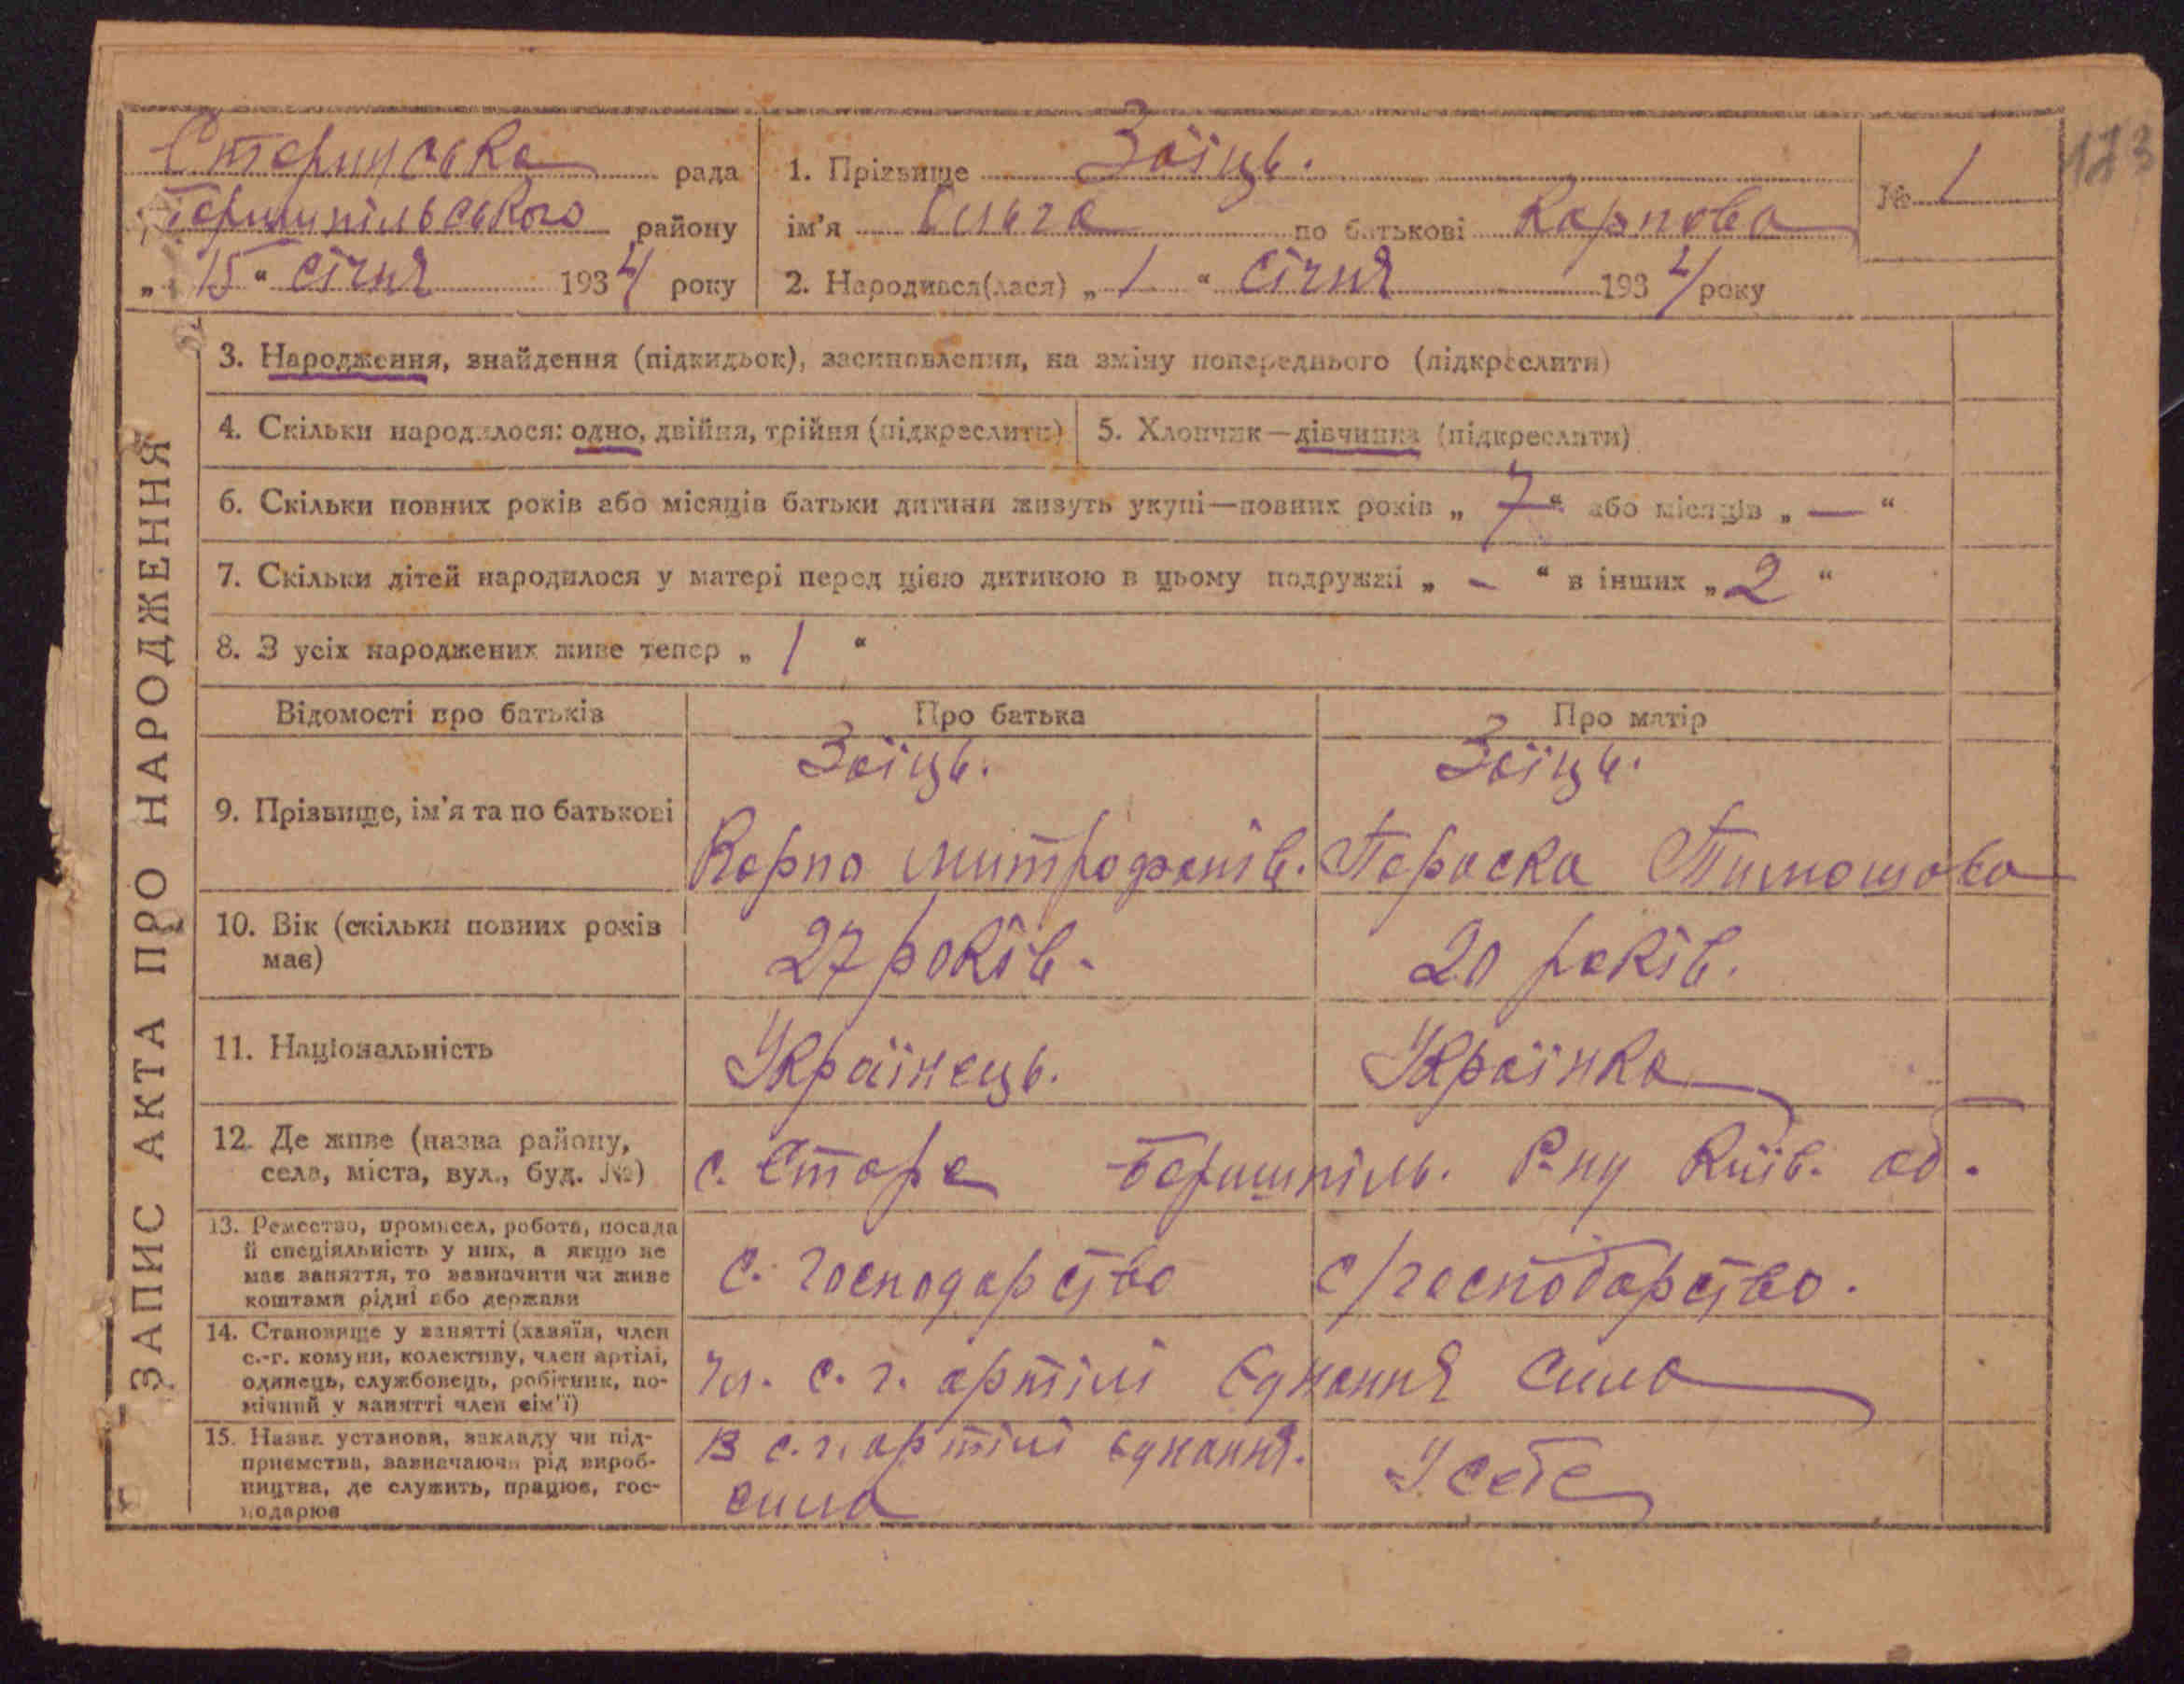 Старинська рада
Баришпільського району
„ 15 “ січня 1934 року
1. Прізвище Заїць.
ім'я Ольга по батькові Карпова
2. Народився(лася) „ 1 “ січня 1934 року
№ 1
173
ЗАПИС АКТА ПРО НАРОДЖЕННЯ
3. Народження, знайдення (підкидьок), засиновлення, на зміну попереднього (підкреслити)
4. Скільки народилося: одно, двійня, трійня (підкреслити)
5. Хлопчик—дівчинка (підкреслити)
6. Скільки повних років або місяців батьки дитини живуть укупі—повних років „ 7 “ або місяців „ — “
7. Скільки дітей народилося у матері перед цією дитиною в цьому подружжі „ - “ в інших „ 2 “
8. З усіх народжених живе тепер „ 1 “
Відомості про батьків
Про батька
Про матір
9. Прізвище, ім'я та по батькові
Заїць.
Карпо Митрофанів.
Заїць.
Параска Тимошова
10. Вік (скільки повних років
має)
27 років.
20 років.
11. Національність
Українець.
Українка
12. Де живе (назва району,
села, міста, вул., буд. №)
с. Старе Баришпіль. Р-ну Київ. об.
13. Ремество, промисел, робота, посада
й спеціяльність у них, а якщо не
має заняття, то зазначити чи живе
коштами рідні або держави
С. господарство
с/господарство.
14. Становище у занятті (хазяїн, член
с.-г. комуни, колективу, член артілі,
одинець, службовець, робітник, по-
мічний у занятті член сім'ї)
Чл. с. г. артілі Єднання Сила
15. Назва установи, закладу чи під-
приємства, зазначаючи рід вироб-
ництва, де служить, працює, гос-
подарює
В с. г. артілі єднання.
сила
У себе